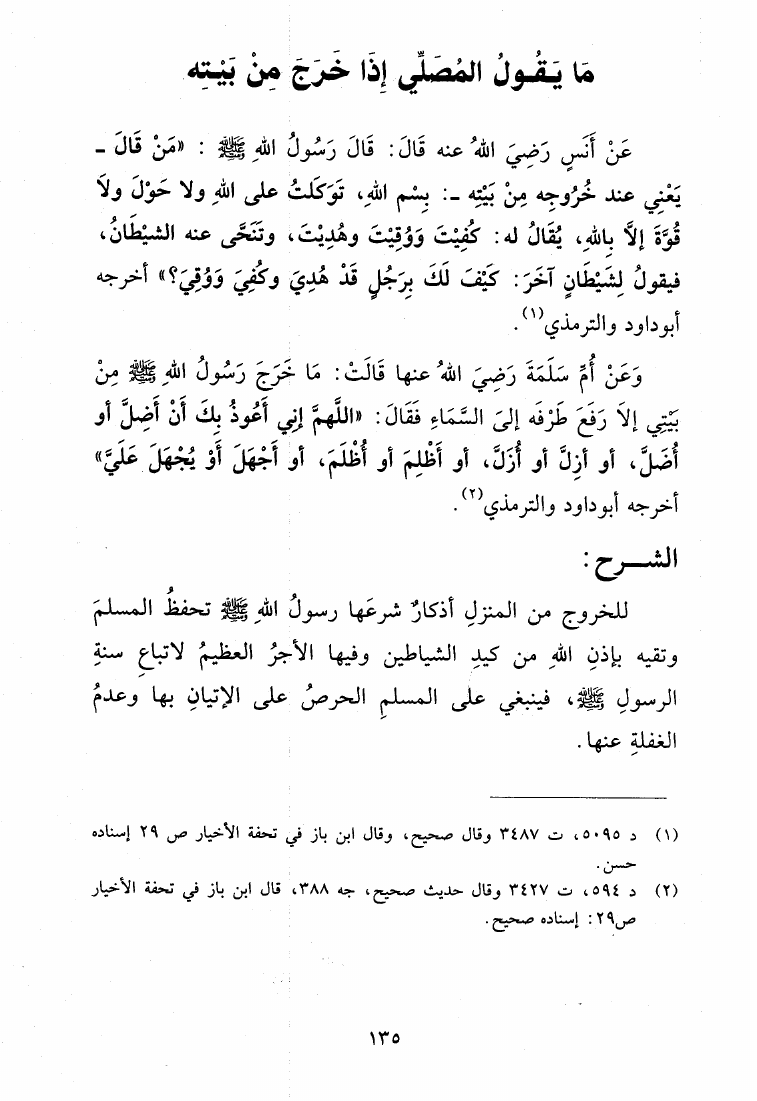 مَا يَـقُـولُ المُصَلِّي إِذَا خَرَجَ مِنْ بَيْـتِه
عَنْ أَنَسٍ رَضِيَ اللهُ عنه قَالَ: قَالَ رَسُولُ اللهِ ﷺ : «مَنْ قَالَ ـ
يَعْنِي عند خُرُوجِه مِنْ بَيْتِه ـ: بِسْمِ اللهِ، تَوَكَلتُ على اللهِ ولا حَوْلَ ولاَ
قُوَّةَ إلاَّ بِاللهِ، يُقَالُ له: كُفِيْتَ وَوُقِيْتَ وهُدِيْتَ، وتَنَحَّى عنه الشيْطَانُ،
فيقولُ لِشَيْطَانٍ آخَرَ: كَيْفَ لَكَ بِرَجُلٍ قَدْ هُدِيَ وكُفِيَ وَوُقِيَ؟» أخرجه
أبوداود والترمذي(١).
وَعَنْ أُمِّ سَلَمَةَ رَضِيَ اللهُ عنها قَالَتْ: مَا خَرَجَ رَسُولُ اللهِ ﷺ مِنْ
بَيْتِي إلاَ رَفَعَ طَرْفَه إلىَ السَّمَاءِ فَقَالَ: «اللَّهمَّ إِنِي أَعُوذُ بِكَ أَنْ أَضِلَّ أو
أُضَلَّ، أو أزِلَّ أو أُزَلَّ، أو أَظْلِمَ أو أُظْلَمَ، أو أَجْهَلَ أَوْ يُجْهَلَ عَلَيَّ»
أخرجه أبوداود والترمذي(٢).
الشـــرح :
للخروج من المنزلِ أذكارٌ شرعَها رسولُ اللهِ ﷺ تحفظُ المسلمَ
وتقيه بإذنِ اللهِ من كيدِ الشياطين وفيها الأجرُ العظيمُ لاتباعِ سنةِ
الرسولِ ﷺ، فينبغي على المسلمِ الحرصُ على الإتيانِ بها وعدمُ
الغفلةِ عنها.
(١) د ٥٠٩٥، ت ٣٤٨٧ وقال صحيح، وقال ابن باز في تحفة الأخيار ص ٢٩ إسناده
حسن.
(٢) د ٥٩٤، ت ٣٤٢٧ وقال حديث صحيح، جه ٣٨٨، قال ابن باز في تحفة الأخيار
ص٢٩: إسناده صحيح.
١٣٥